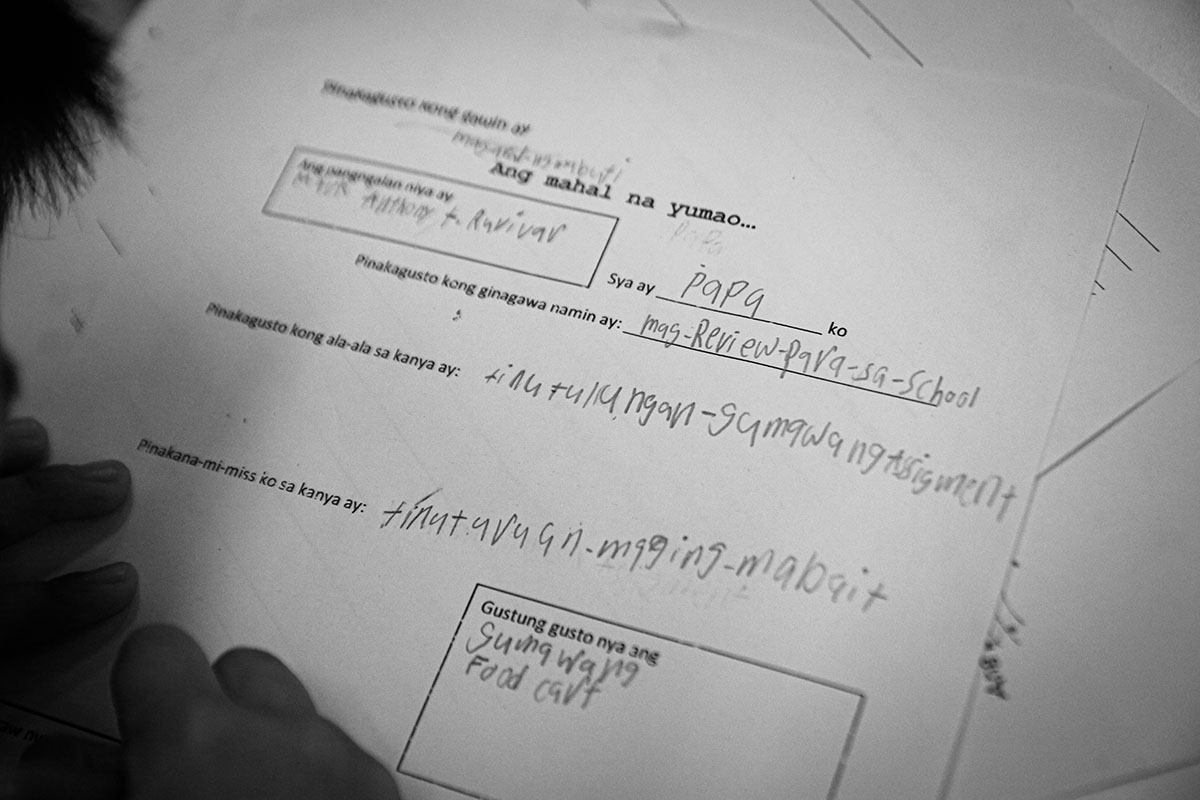 Pinakagusto kong gawin ay
Ang mahal na yumao...
Ang pangngalan niya ay
Mark Anthony t. Ravivar
papa
Sya ay papa ko
Pinakagusto kong ginagawa namin ay: mag-Review-para-sa-School
Pinakagusto kong ala-ala sa kanya ay: tinutulungan-gumawang Assigment
Pinakana-mi-miss ko sa kanya ay: tinuturuan-maging-mabait
Gustung gusto nya ang
Gumawang
Food cart